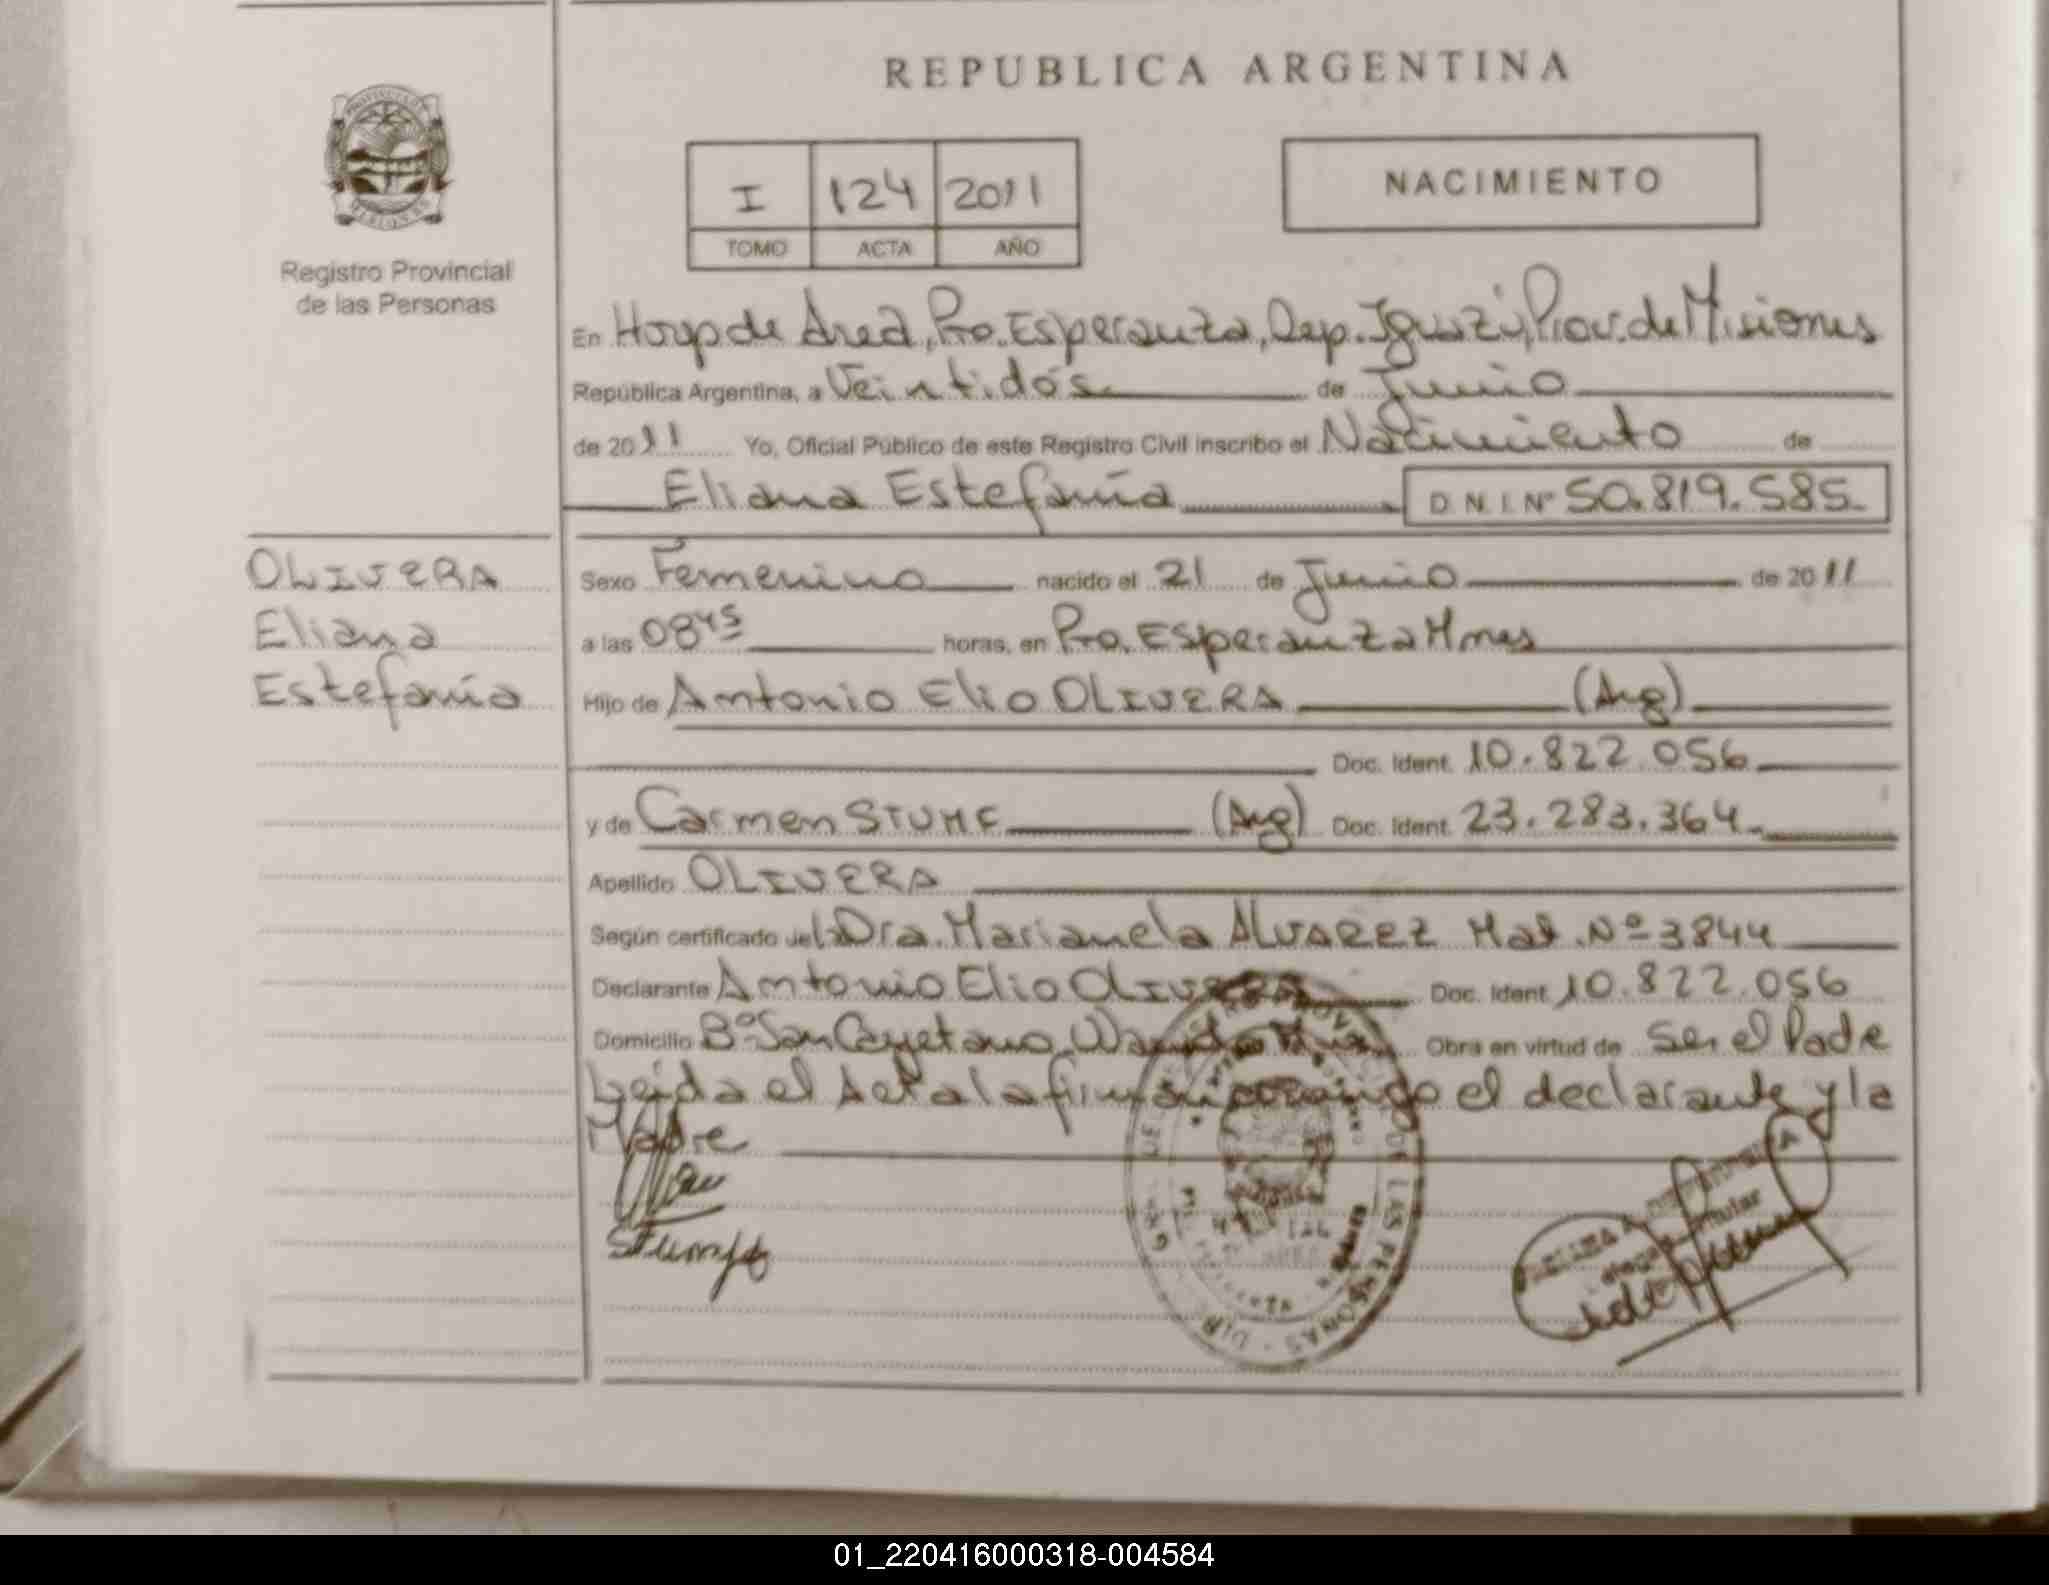 REPUBLICA ARGENTINA
PROVINCIA DE
MISIONES
Registro Provincial
de las Personas
I 124 2011
TOMO ACTA AÑO
NACIMIENTO
En Hosp de Area, Pto. Esperanza, Dep. Iguazú, Prov. de Misiones
República Argentina, a Veintidós de Junio
de 2011 Yo, Oficial Público de este Registro Civil inscribo el Nacimiento de
Eliana Estefanía D N I Nº 50.819.585
OLIVERA
Eliana
Estefanía
Sexo Femenino nacido el 21 de Junio de 2011
a las 08 45 horas, en Pto. Esperanza Mnes
Hijo de Antonio Elio OLIVERA (Arg)
Doc. Ident. 10.822.056
y de Carmen (Arg) Doc. Ident. 23.283.364
Apellido OLIVERA
Según certificado de la Dra. Marianela ALVAREZ Mat. Nº 3844
Declarante Antonio Elio OLIVERA Doc. Ident. 10.822.056
Domicilio Bº San Cayetano, Wanda Obra en virtud de Ser el Padre
Leída el Acta la firman el declarante y la
Madre
DE LAS PERSONAS
Titular
01_220416000318-004584